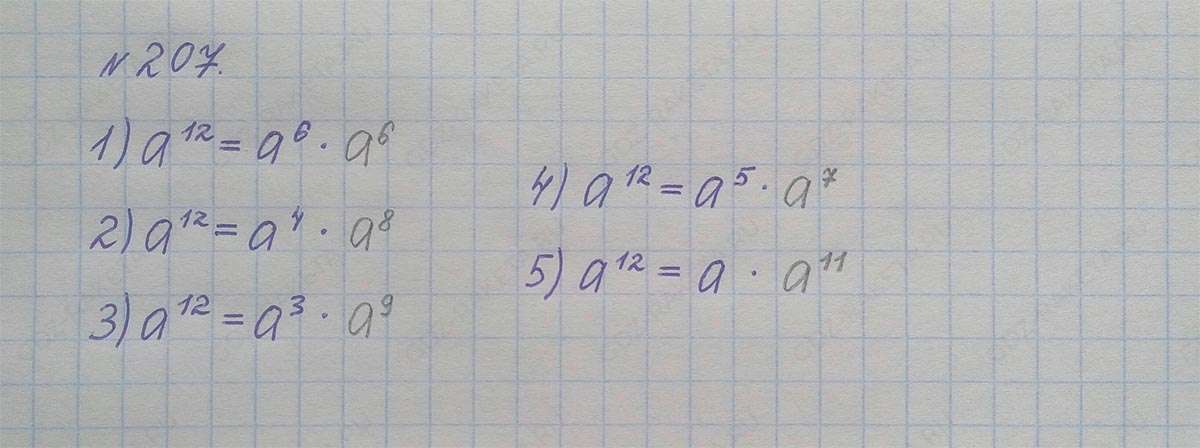 № 207.
1) a¹² = a⁶ · a⁶
2) a¹² = a⁴ · a⁸
3) a¹² = a³ · a⁹
4) a¹² = a⁵ · a⁷
5) a¹² = a · a¹¹